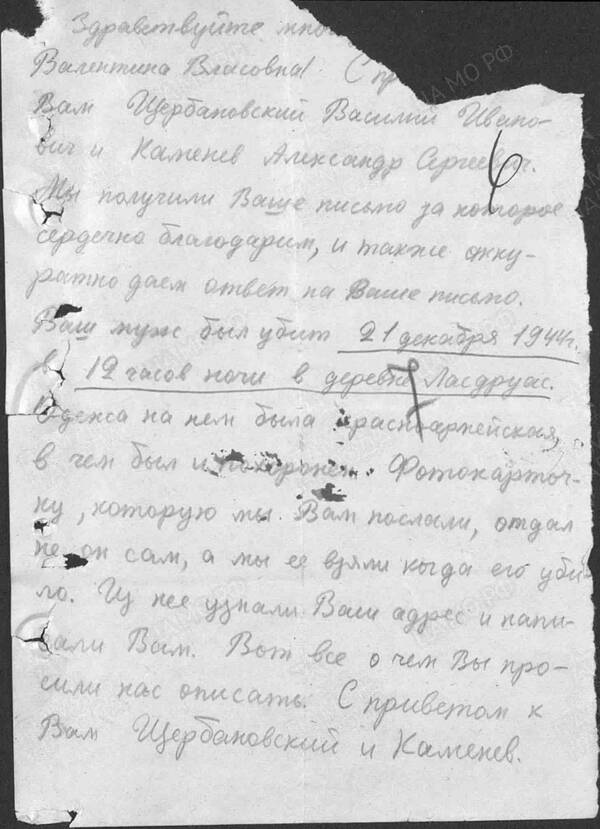 Здравствуйте мно
Валентина Власовна! С пр
Вам Щербановский Василий Ивано-
вич и Каменев Александр Сергеевич.
Мы получили Ваше письмо за которое
сердечно благодарим, и также акку-
ратно даем ответ на Ваше письмо.
Ваш муж был убит 21 декабря 1944г.
в 12 часов ночи в деревне Ласдруас.
Одежа на нем была красноармейская,
в чем был и похоронен. Фотокарточ-
ку, которую мы Вам послали, отдал
не он сам, а мы ее взяли когда его уби-
ло. Из нее узнали Ваш адрес и напи-
сали Вам. Вот все о чем Вы про-
сили нас описать. С приветом к
Вам Щербановский и Каменев.